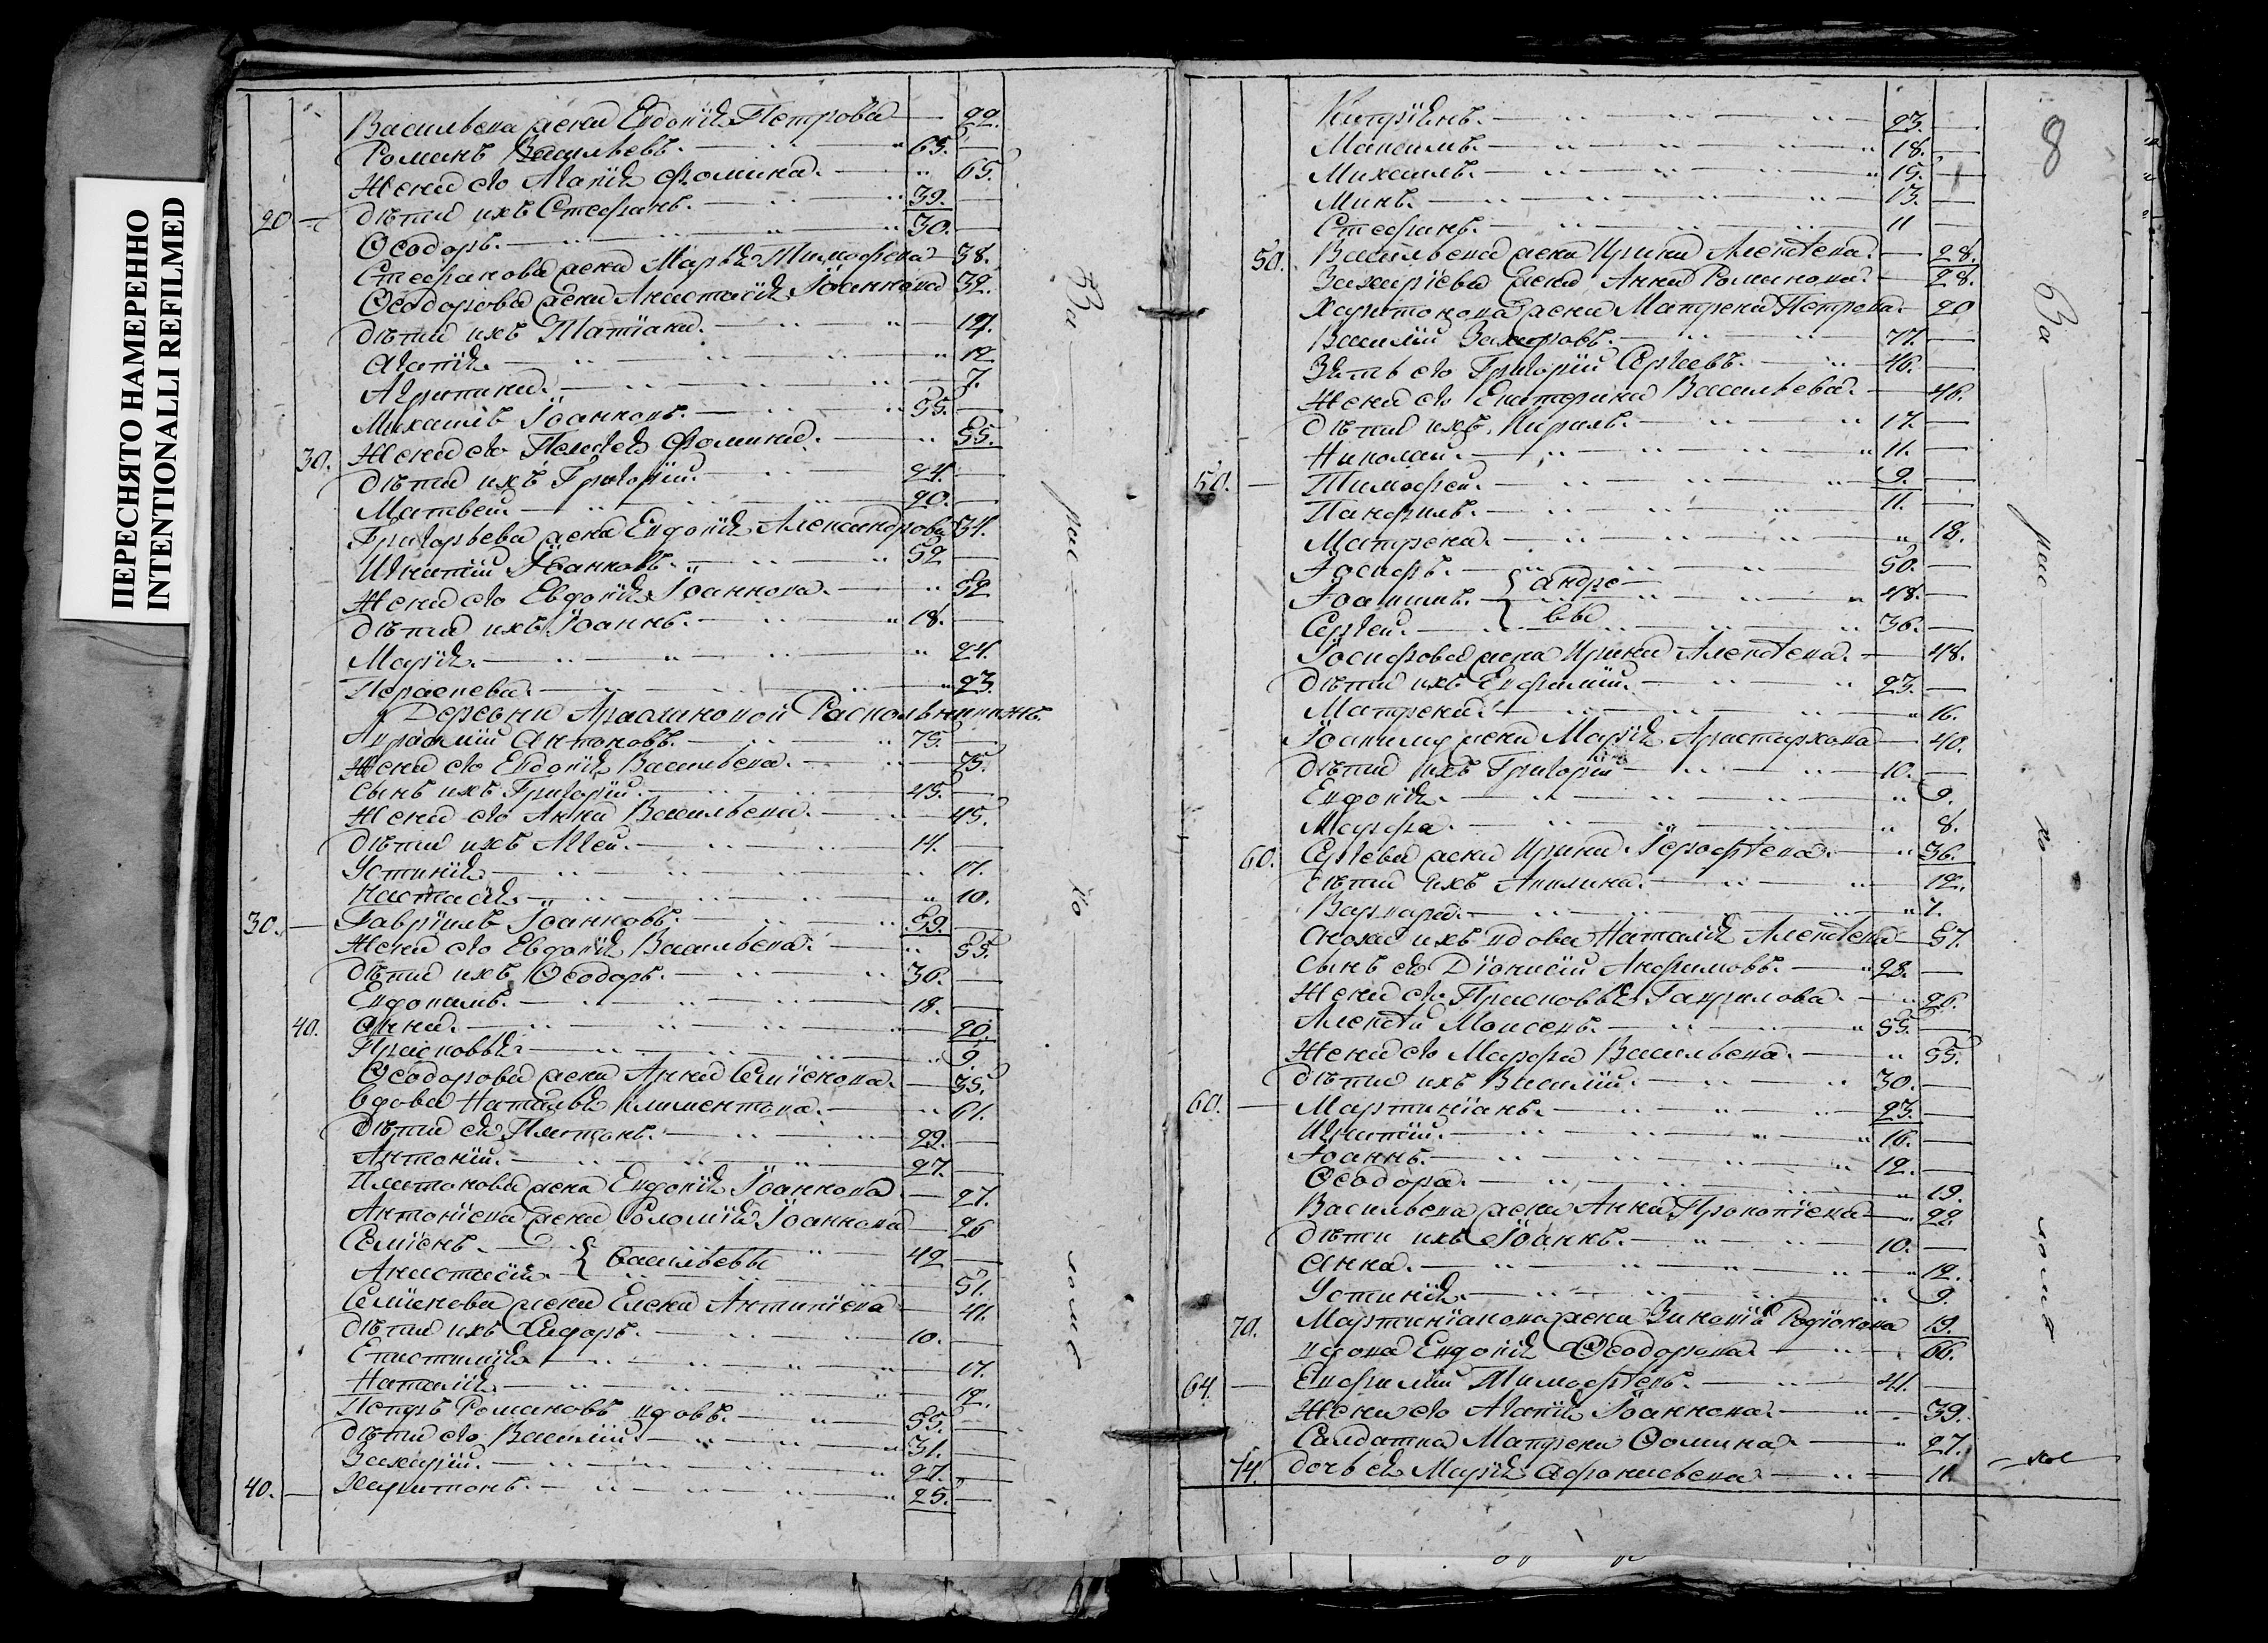 ПЕРЕСНЯТО НАМЕРЕННО
INTENTIONALLI REFILMED
Васильева жена Евдокія Петрова 22.
Романъ Васильевъ. 65.
Жена его Агапія Фомина. 65.
20 Дѣти ихъ Стефанъ. 39.
Ѳеодоръ. 30.
Стефанова жена Марья Тимофеева 38.
Ѳеодорова жена Анастасія Іоаннова 32.
Дѣти ихъ Татіана. 12.
Агапія 12
Агрипина. 7.
Михаилъ Іоанновъ. 55.
30. Жена его Пелагея Фомина. 55.
Дѣти ихъ Григорій. 24.
Матвей. 20.
Григорьева жена Евдокія Александрова 34.
Игнатій Іоанновъ. 52
Жена его Евдокія Іоаннова. 52
Дѣти ихъ Іоаннъ. 18.
Марія. 24.
Парасцева. 23.
Деревни
75.
Жена его Евдокія Васильева. 75.
Сынъ ихъ Григорій. 45.
Жена его Анна Васильева. 45.
Дѣти ихъ 14.
Устинія 17.
Настасія. 10.
30. Гавріилъ Іоанновъ. 59.
Жена его Евдокія Васильева. 55.
Дѣти ихъ Ѳеодоръ. 30.
Евдокимъ. 18.
40. Анна. 20.
Прасковья 9.
Ѳеодорова жена Анна Семіонова. 35.
Вдова Наталья Климентова. 61.
Дѣти ея Платонъ. 29.
Антоній. 27.
Платонова жена Евдокія Іоаннова 27.
Антоніева жена Соломія Іоаннова 26
Семіонъ. } Васильевы 42
Анастасія. 51.
Семіонова жена Елена Антипіева 41.
Дѣти ихъ 10.
Епистимія 17.
Наталія. 12.
Петръ Романовъ вдовъ. 55.
Дѣти его Василій 31.
Захарій. 27.
40. Харитонъ. 25.
Ва рас ко ма
8
Кипріанъ. 23.
Максимъ. 18.
Михаилъ. 15.
Мина. 13.
Стефанъ. 11
50. Васильева жена Ирина Алексѣева. 28.
Захаріева жена Анна Романова. 28.
Харитонова жена Матрена Петрова 20
Василій Захаровъ. 77.
Зять его Григорій Сергеевъ. 46.
Жена его Екатерина Васильева. 46.
Дѣти ихъ Кирилъ. 17.
Николай. 11.
50. Тимофей. 9.
Панфилъ. 11.
Матрена. 18.
Іосифъ. 50.
Іоакимъ. { андре 48.
Сергей. вы 36.
Іосифова жена Ирина Алексѣева. 48.
Дѣти ихъ Евфимій. 23.
Матрена. 16.
Іоакима жена Марія Аристархова 40.
Дѣти ихъ Григорій 10.
Евдокія. 9.
Марфа. 8.
60. Сергева жена Ирина Іерофѣева. 36.
Дѣти ихъ Акилина. 12.
Варвара. 7.
Сноха ихъ вдова Наталія Алексѣева 57.
Сынъ ея Діонисій Анфимовъ. 28.
Жена его Прасковья Гаврилова. 26.
Алексѣй Моисеевъ. 55.
Жена его Марфа Васильева. 55.
Дѣти ихъ Василій. 30.
60. Мартиніанъ. 23.
Игнатій. 16.
Іоаннъ. 12.
Ѳеодора. 19.
Васильева жена Анна Прокопіева 29
Дѣти ихъ Іоаннъ. 10.
Анна. 12.
Устинія. 9.
70. Мартиніанова жена Родіонова 19.
вдова Евдокія Ѳеодорова 66.
64. Евфимій Тимофѣевъ. 41.
Жена его Агапія Іоаннова. 39.
Салдатка Матрена Ѳомина 27.
74. Дочь ея Марія Афонасьева 11.
Ва рас ко ма